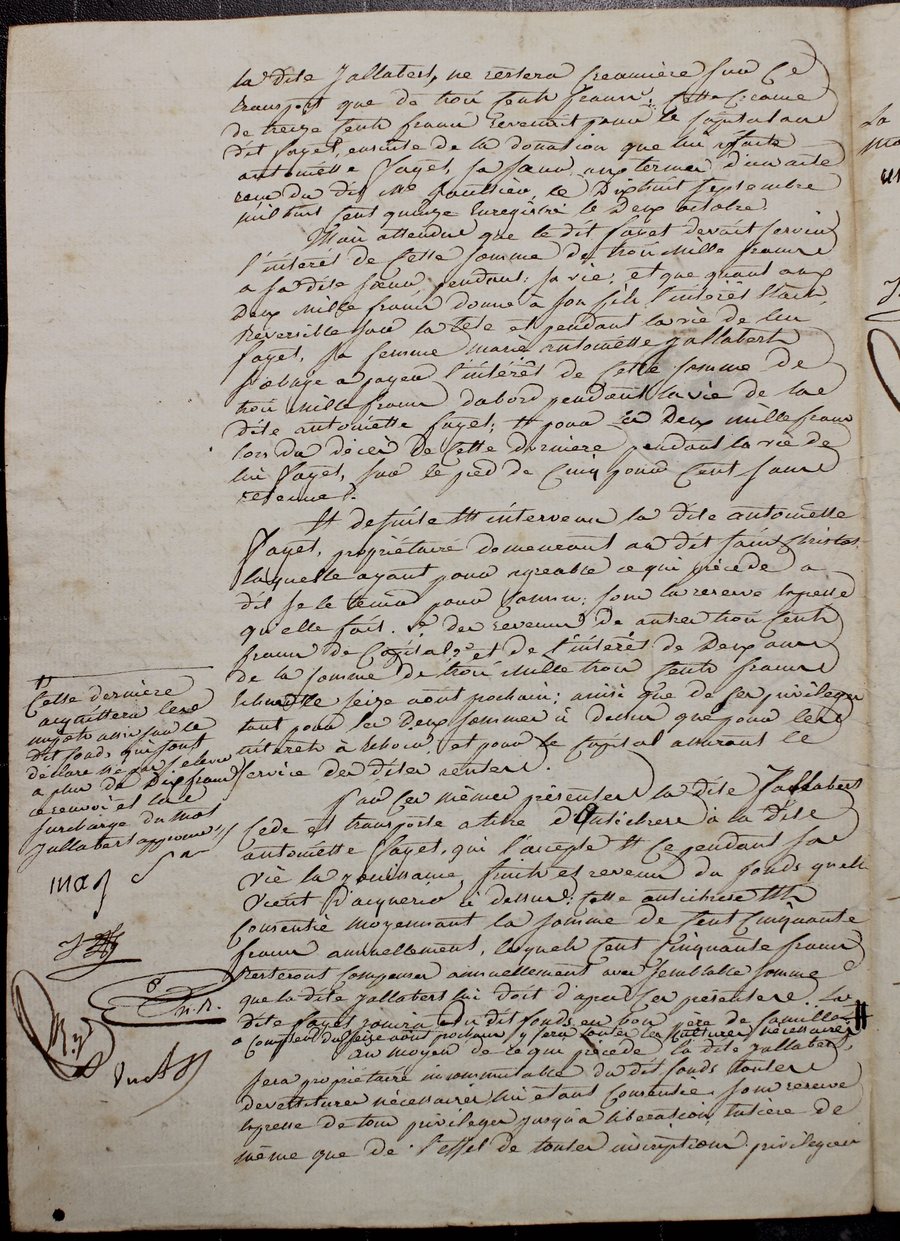 la dite Jallabert, ne restera créancière sur ce
transport que de trois cents francs; cette creance
de treize cents francs revenait pour le capital au
dit Fayet, ensuite de la donation que lui a faite
antoinette Fayet, sa sœur aux termes d'un acte
reçu du dit Me le Dixhuit Septembre
mil huit cent quinze Enregistré le Deux octobre.
Mais attendu que le dit Fayet devait servir
l'intérêt de cette somme de trois mille francs
a sa dite sœur, pendant sa vie; et que quant aux
Deux mille francs donnés à son fils l'intérêt était
Reversible sur la tête et pendant la vie de lui
Fayet, sa femme marie antoinette Jallabert
s'oblige a payer l'intérêt de cette somme de
trois mille francs dabord pendant la vie de la
dite antoinette Fayet; et pour les Deux mille francs
lors du décès de cette derniere pendant la vie de
lui Fayet, sur le pied de cinq pour cent sans
retenue.
Et de suite est intervenu la dite antoinette
Fayet, propriétaire demeurant au dit Saint Christo
laquelle ayant pour agréable ce qui précède a
dit se le tenir pour ; sous la reserve expresse
qu'elle fait. des revenus de autres trois cents
francs de Capital, et de l'intérêt de Deux ans
de la somme de trois mille trois cents francs
seize aout prochain; ainsi que de ses privileges
tant pour les Deux sommes ci dessus que pour les
interets à échoir, et pour le Capital assurant le
service des dites rentes.
Par ces mêmes présentes la dite Jallabert
Cede et transporte a titre d'antichrese à la dite
antoinette Fayet, qui l'accepte et ce pendant sa
vie la jouissance fruits et revenus du fonds quelle
vient d'acquerir ci dessus; cette antichrese est
Consentie moyennant la somme de cent cinquante
francs annuellement, lesquels cent cinquante francs
resteront compensés annuellement avec semblable somme
que la dite Jallabert lui doit d'après ses présentes. La
dite Fayet jouira du dit fonds en bon père de famille
a compter du seize aout prochain y fera toutes les cultures nécessaires
au moyen de ce que precede la dite Jallabert,
sera propriétaire incommutable du dit fonds toutes
devetitures nécessaires lui étant consenties sous reserve
expresse de tous privileges jusqu'à libération entière de
même que de l'effet de toutes inscriptions. privilegiées
Cette dernière
acquittera les
impots assis sur le
dit fonds, qui sont
déclarés ne pas s'elever
a plus de Dix francs
ce renvoi et la
surcharge du mot
Jallabert approuvés